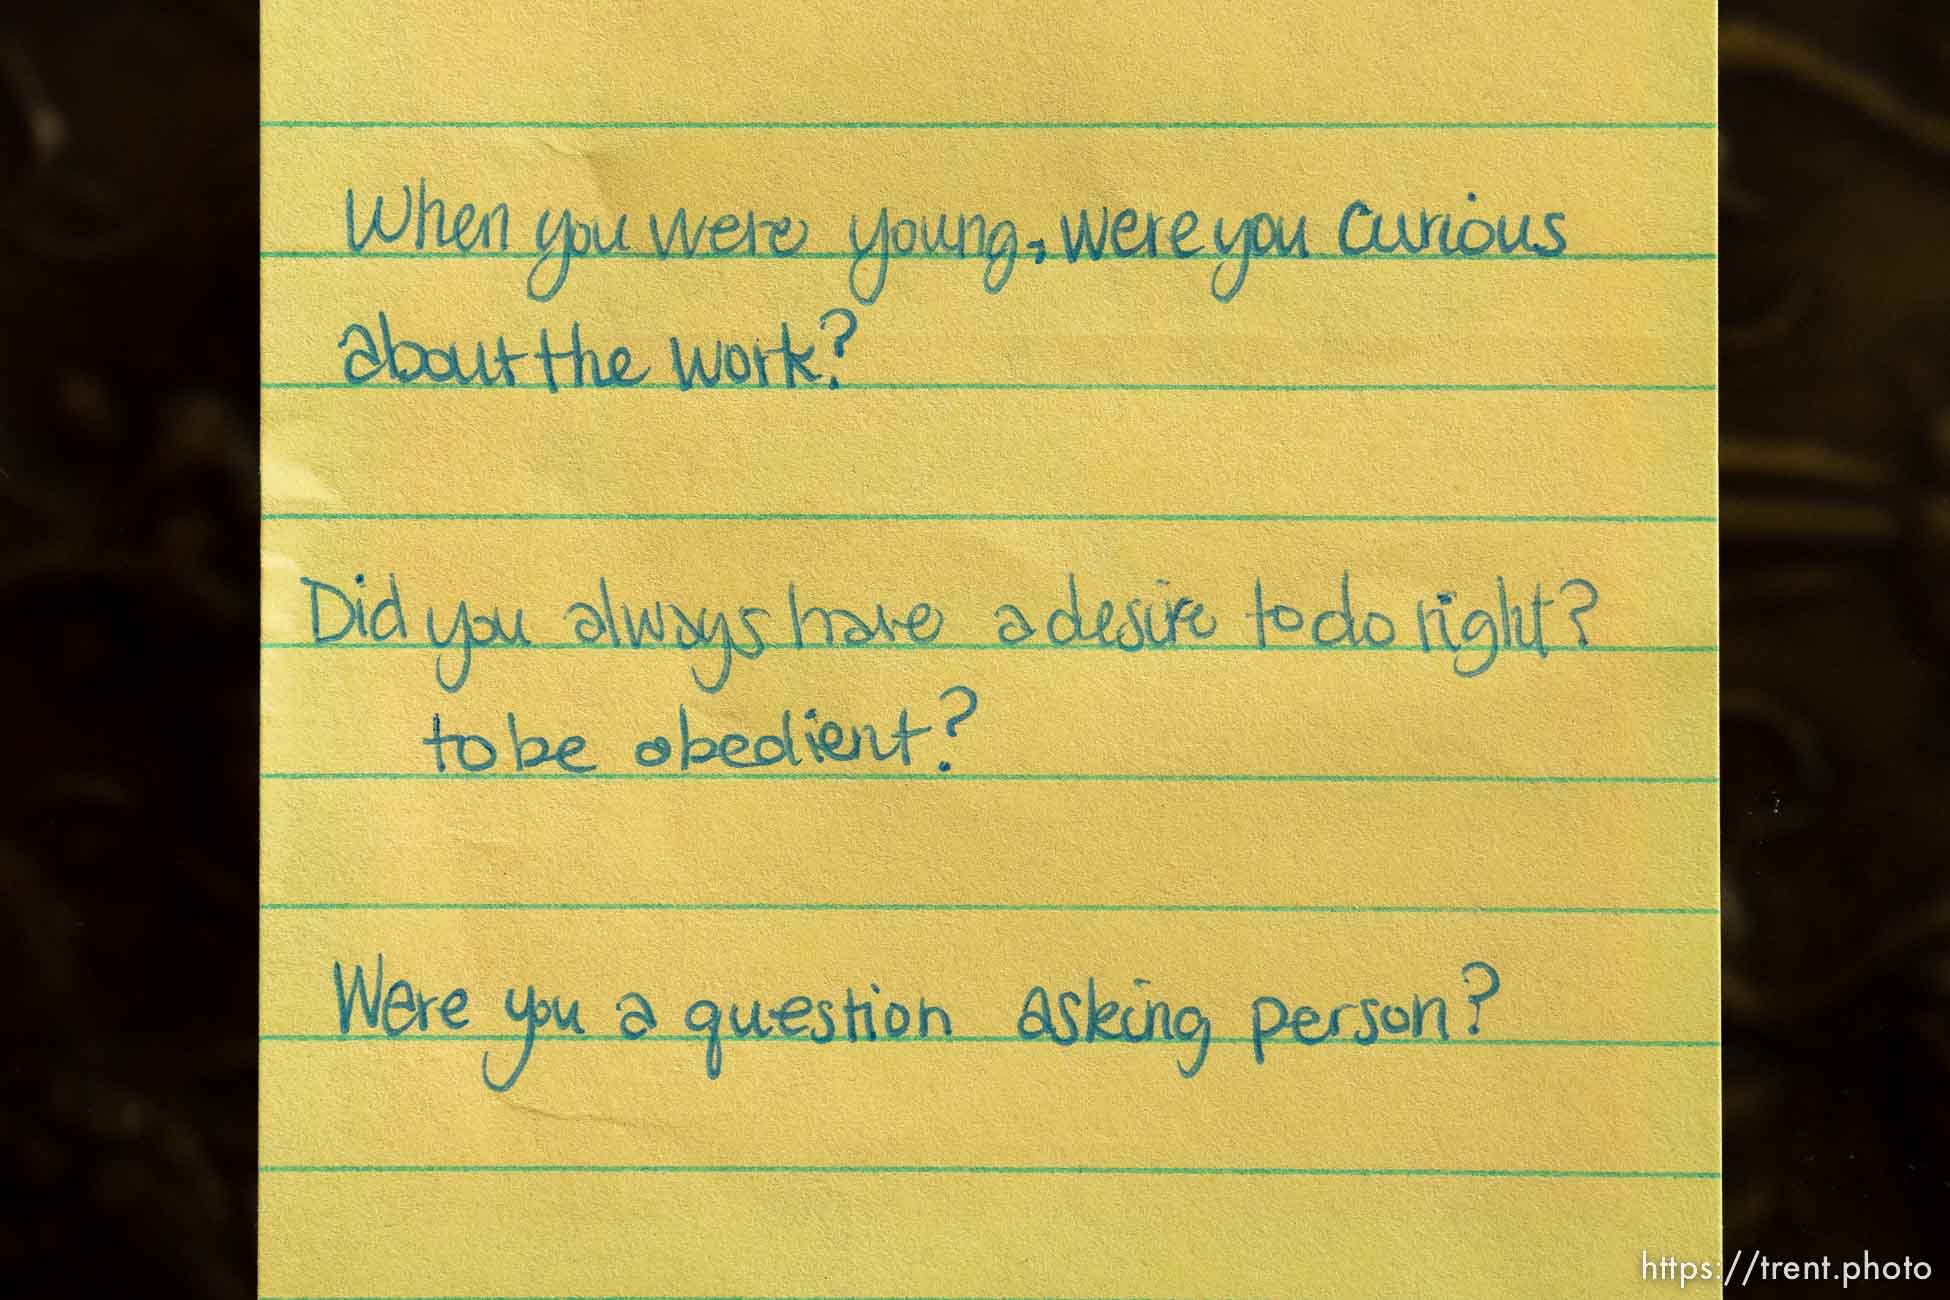 When you were young, were you curious
about the work?
Did you always have a desire to do right?
to be obedient?
Were you a question asking person?
https://trent.photo